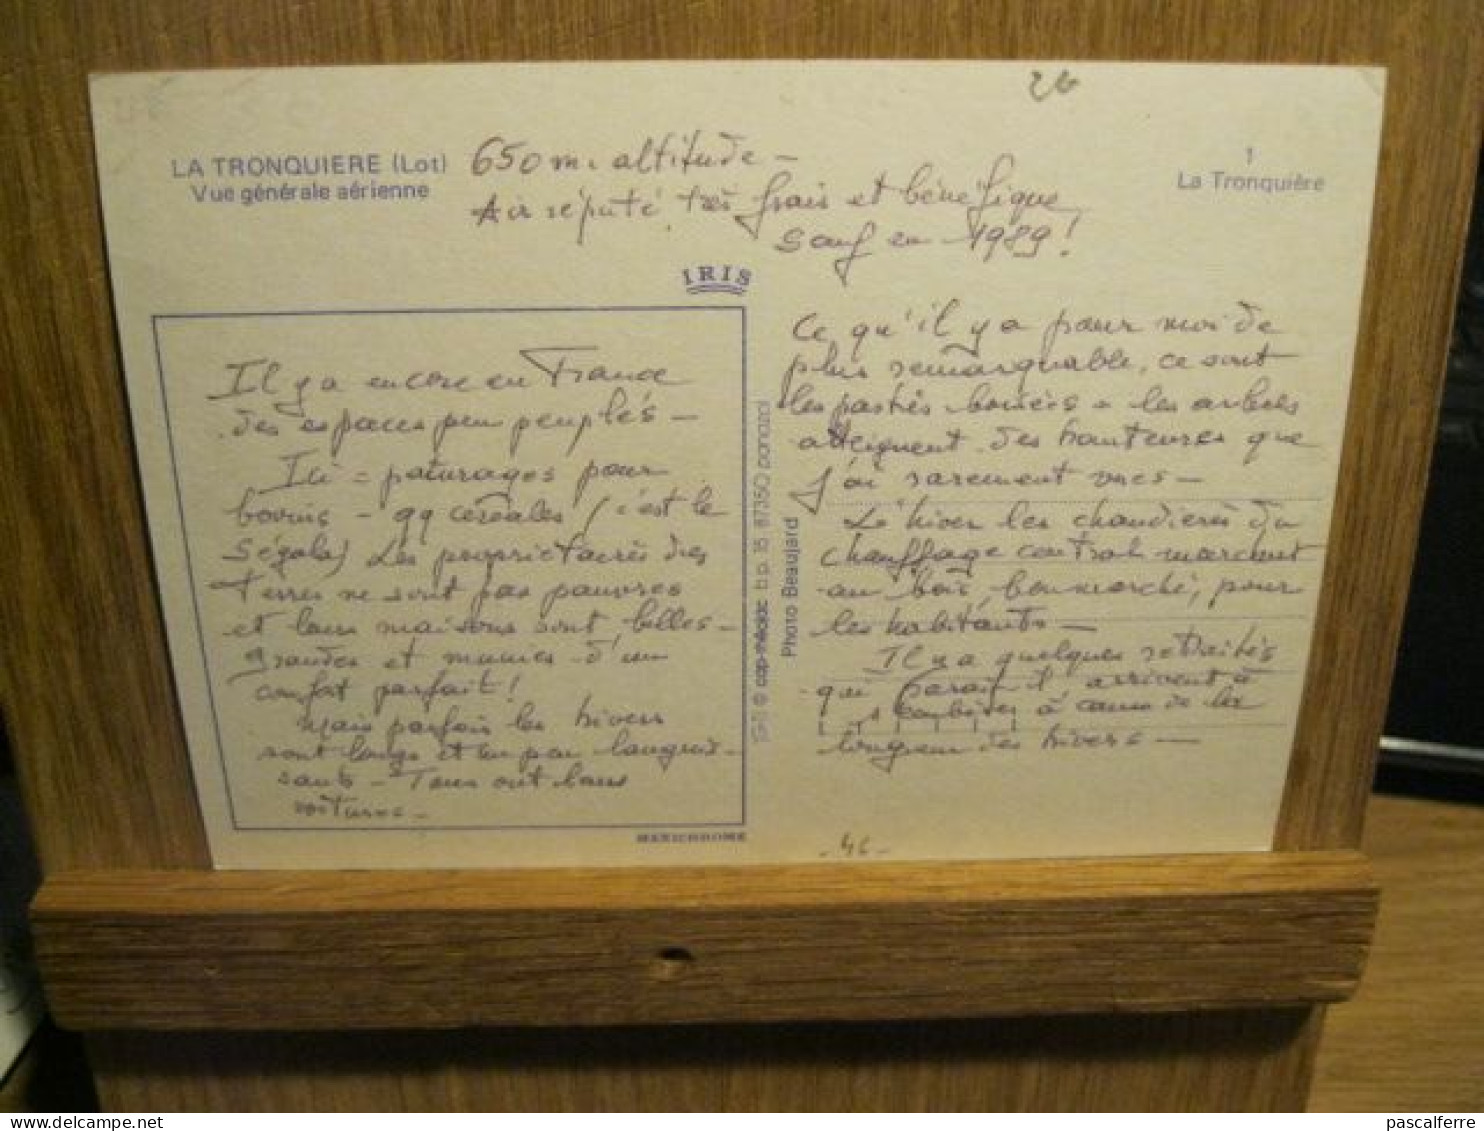 26
LA TRONQUIERE (Lot)
Vue générale aérienne
650 m. altitude -
Air réputé, très frais et bénéfique,
sauf en 1989!
1
La Tronquière
IRIS
Il y a encore en France
des espaces peu peuplés -
Ici = paturages pour
bovins - qq céréales (c'est le
Ségala) Les propriétaires des
terres ne sont pas pauvres
et leurs maisons sont belles -
grandes et munies d'un
confort parfait!
Mais parfois les hivers
sont longs et un peu languis-
sants - Tous ont leurs
voitures -
MEXICHROME
cap-théojac b.p. 15 87350 panazol
Photo Beaujard
Ce qu'il y a pour moi de
plus remarquable, ce sont
les pastiés boisés - les arbres
atteignent des hauteurs que
j'ai rarement vues -
L'hiver les chaudières du
chauffage central marchent
au bois, bon marché, pour
les habitants -
Il y a quelques retraités
qui paraît-il, arrivent à
à cause de la
longueur des hivers -
- 46 -
pascalferre